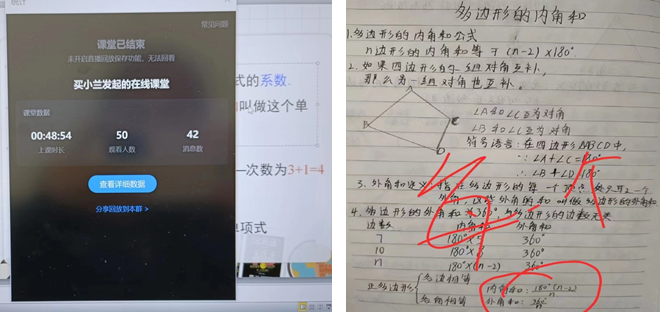 统计
常见问题
课堂已结束
未开启直播回放保存功能，无法回看
买小兰发起的在线课堂
课堂数据
00:48:54
50
42
上课时长
观看人数
消息数
查看详细数据
分享回放到本群 >
式的系数.
叫做这个单
一次数为3+1=4
项式
多边形的内角和
1.多边形的内角和公式
n边形的内角和等于(n-2)×180°
2.如果四边形的一组对角互补,
那么另一组对角也互补。
A
B
C
D
∠A和∠C互为对角
∠B和∠C互为对角
符号语言:在四边形ABCD中,
∵∠A+∠C=180°
∴∠B+∠D=180°
3.外角和定义:
叫做多边形的外角和
4.多边形的外角和
360°
多边形的边数无关
边数
内角和
外角和
7
180°×5
360°
10
180°×8
360°
n
180°×(n-2)
360°
正多边形
各边相等
各角相等
内角和:180°(n-2)/n
外角和:360°/n